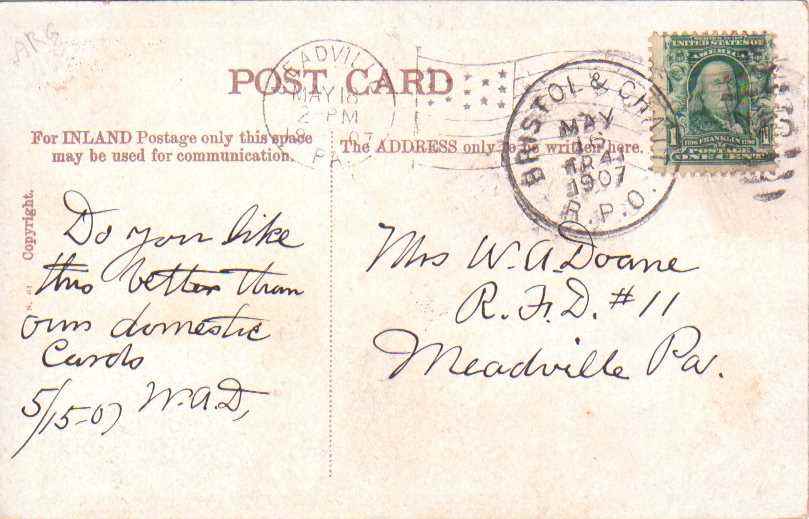 ARG
POST CARD
MEADVILLE
MAY 18
2 PM
07
PA
BRISTOL & CHA
MAY
16
TR 41
1907
R.P.O.
UNITED STATES OF
AMERICA
1 FRANKLIN 1
POSTAGE
ONE CENT
For INLAND Postage only this space
may be used for communication.
The ADDRESS only to be written here.
Copyright.
Do you like
this better than
our domestic
Cards
5/15-07 W.A.D,
Mrs W.A. Doane
R.F.D. #11
Meadville Pa.